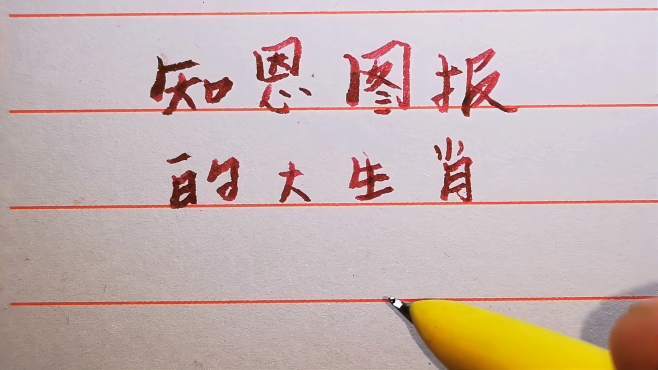 知恩图报
的大生肖